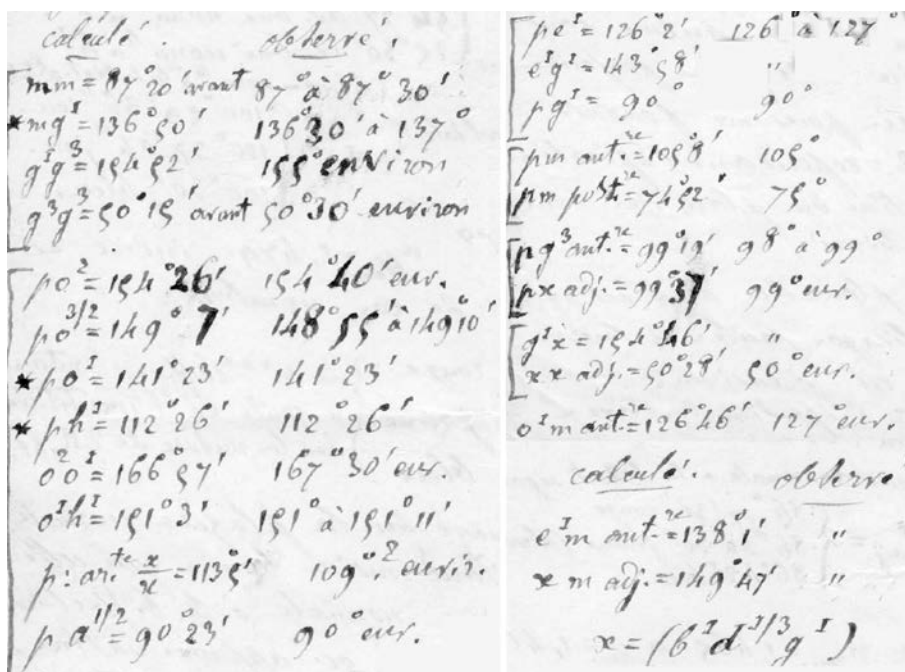 calculé observé.
mm = 87° 20' avant 87° à 87° 30'
* mg¹ = 136° 50' 136° 30' à 137°
g¹g³ = 154° 52' 155° environ
g³g³ = 50° 15' avant 50° 30' environ
po² = 154° 26' 154° 40' eur.
po^3/2 = 149° 7' 148° 55' à 149° 10'
* po¹ = 141° 23' 141° 23'
* ph¹ = 112° 26' 112° 26'
o²o¹ = 166° 57' 167° 30' eur.
o¹h¹ = 151° 3' 151° à 151° 11'
p: ar.te x/x = 113° 5' 109°.2 envir.
pa^1/2 = 90° 23' 90° eur.
pe¹ = 126° 2' 126° à 127°
e¹g¹ = 143° 58' "
pg¹ = 90° 90°
pm ant.re = 105° 8' 105°
pm post.re = 74° 52' 75°
pg³ ant.re = 99° 19' 98° à 99°
px adj. = 99° 37' 99° eur.
g¹x = 154° 46' "
xx adj. = 50° 28' 50° eur.
o¹m ant.re = 126° 46' 127° eur.
calculé. observé
e¹m ant.re = 138° 1' "
x m adj. = 149° 47' "
x = (b¹ d^1/3 g¹)